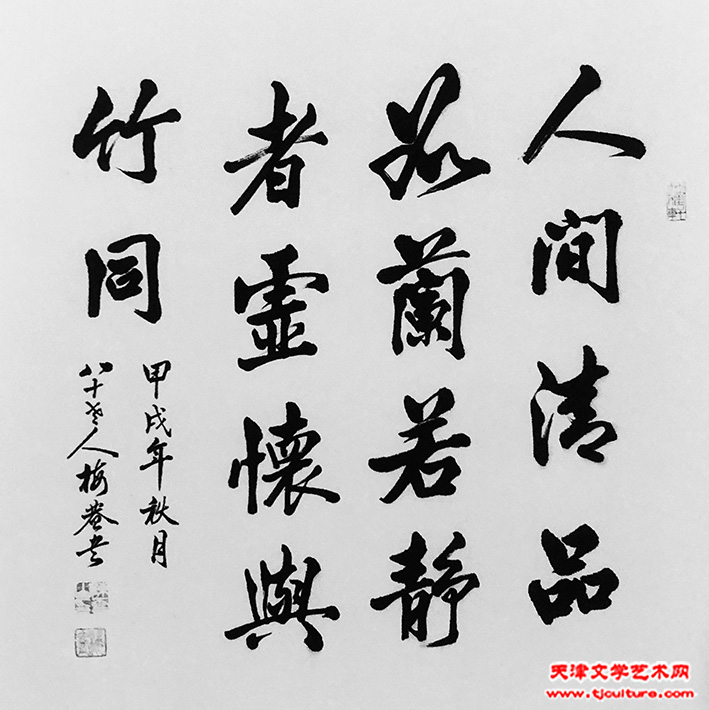 人間清品
如蘭若静
者虛懷與
竹同
甲戌年秋月
八十老人梅菴書
天津文学艺术网
www.tjculture.com